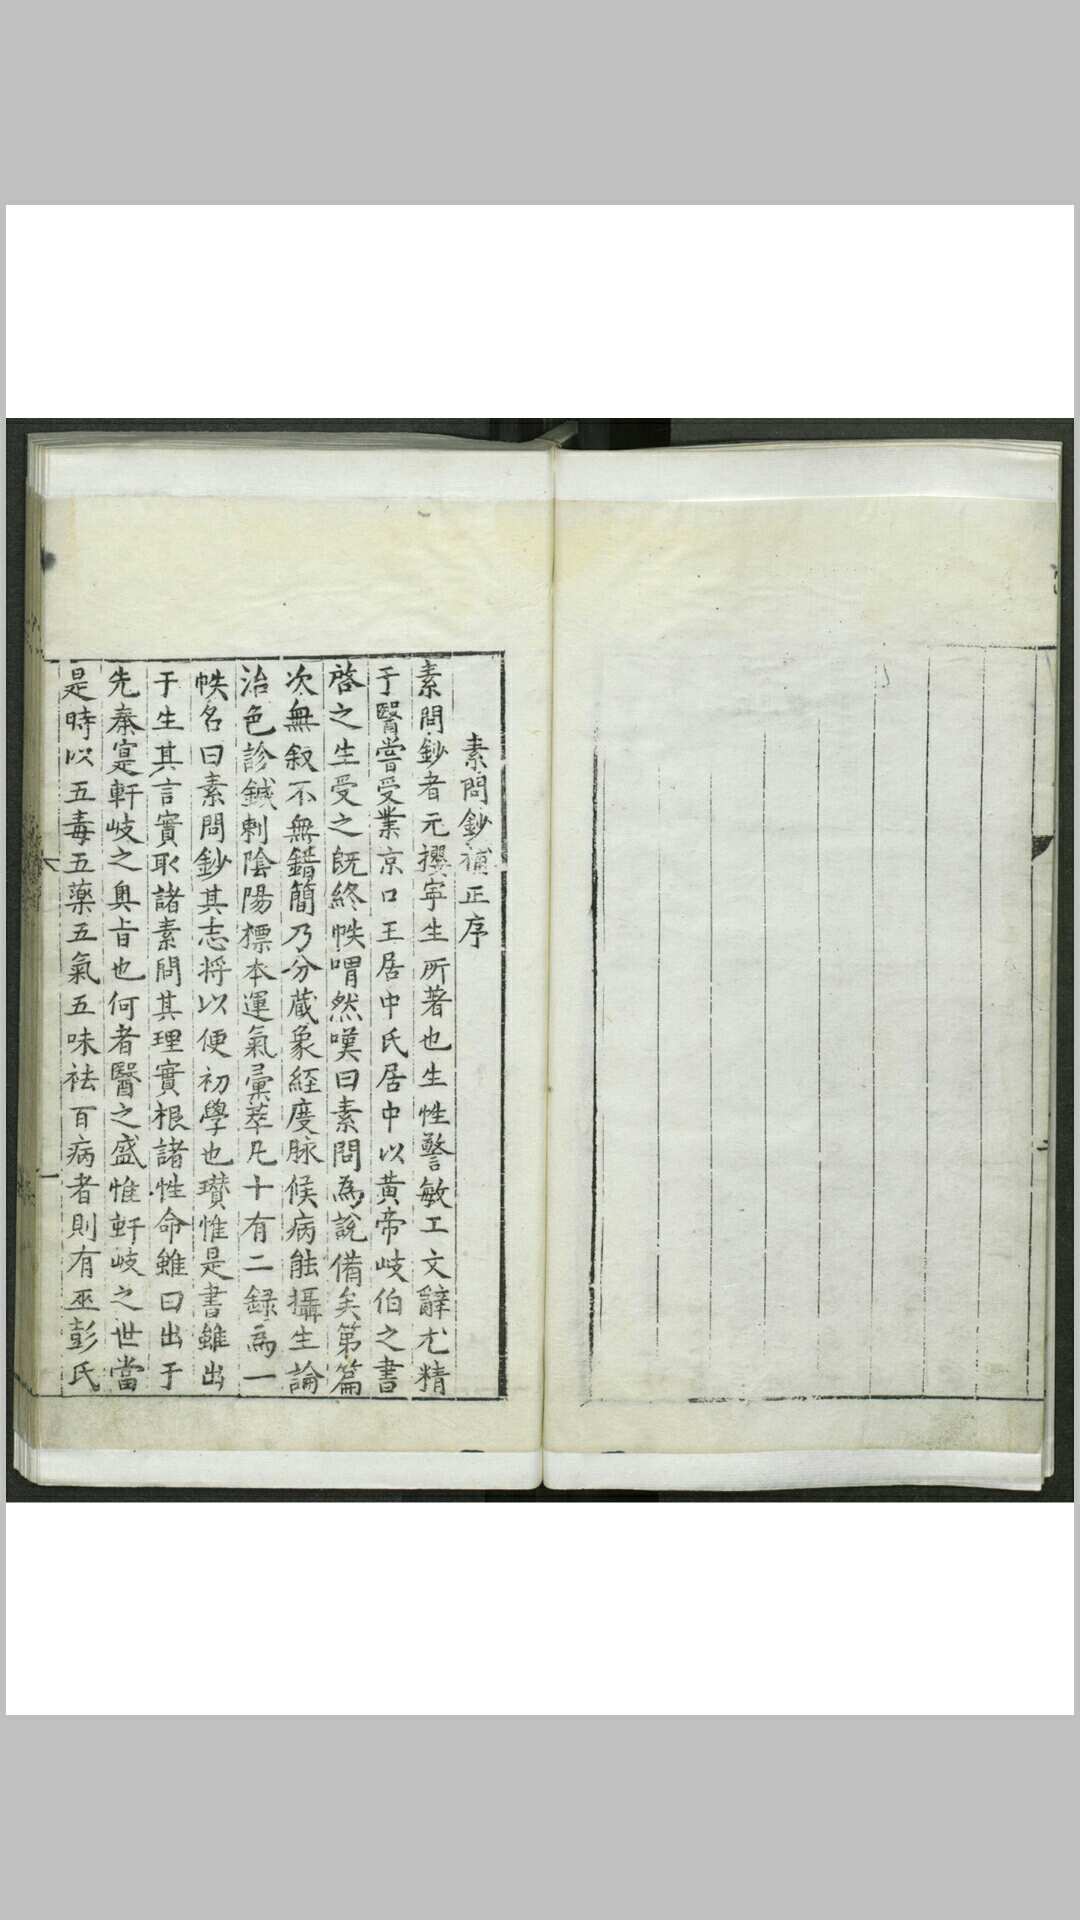 素問鈔補正序
素問鈔者元攖寧生所著也生性警敏工文辭尤精
于醫嘗受業京口王居中氏居中以黃帝岐伯之書
啓之生受之旣終帙喟然嘆曰素問爲說備矣第篇
次無叙不無錯簡乃分藏象經度脉候病能攝生論
治色診鍼刺陰陽標本運氣彚萃凡十有二録爲一
帙名曰素問鈔其志将以便初學也瓚惟是書雖出
于生其言實取諸素問其理實根諸性命雖曰出于
先秦寔軒岐之奥旨也何者醫之盛惟軒岐之世當
是時以五毒五藥五氣五味祛百病者則有巫彭氏